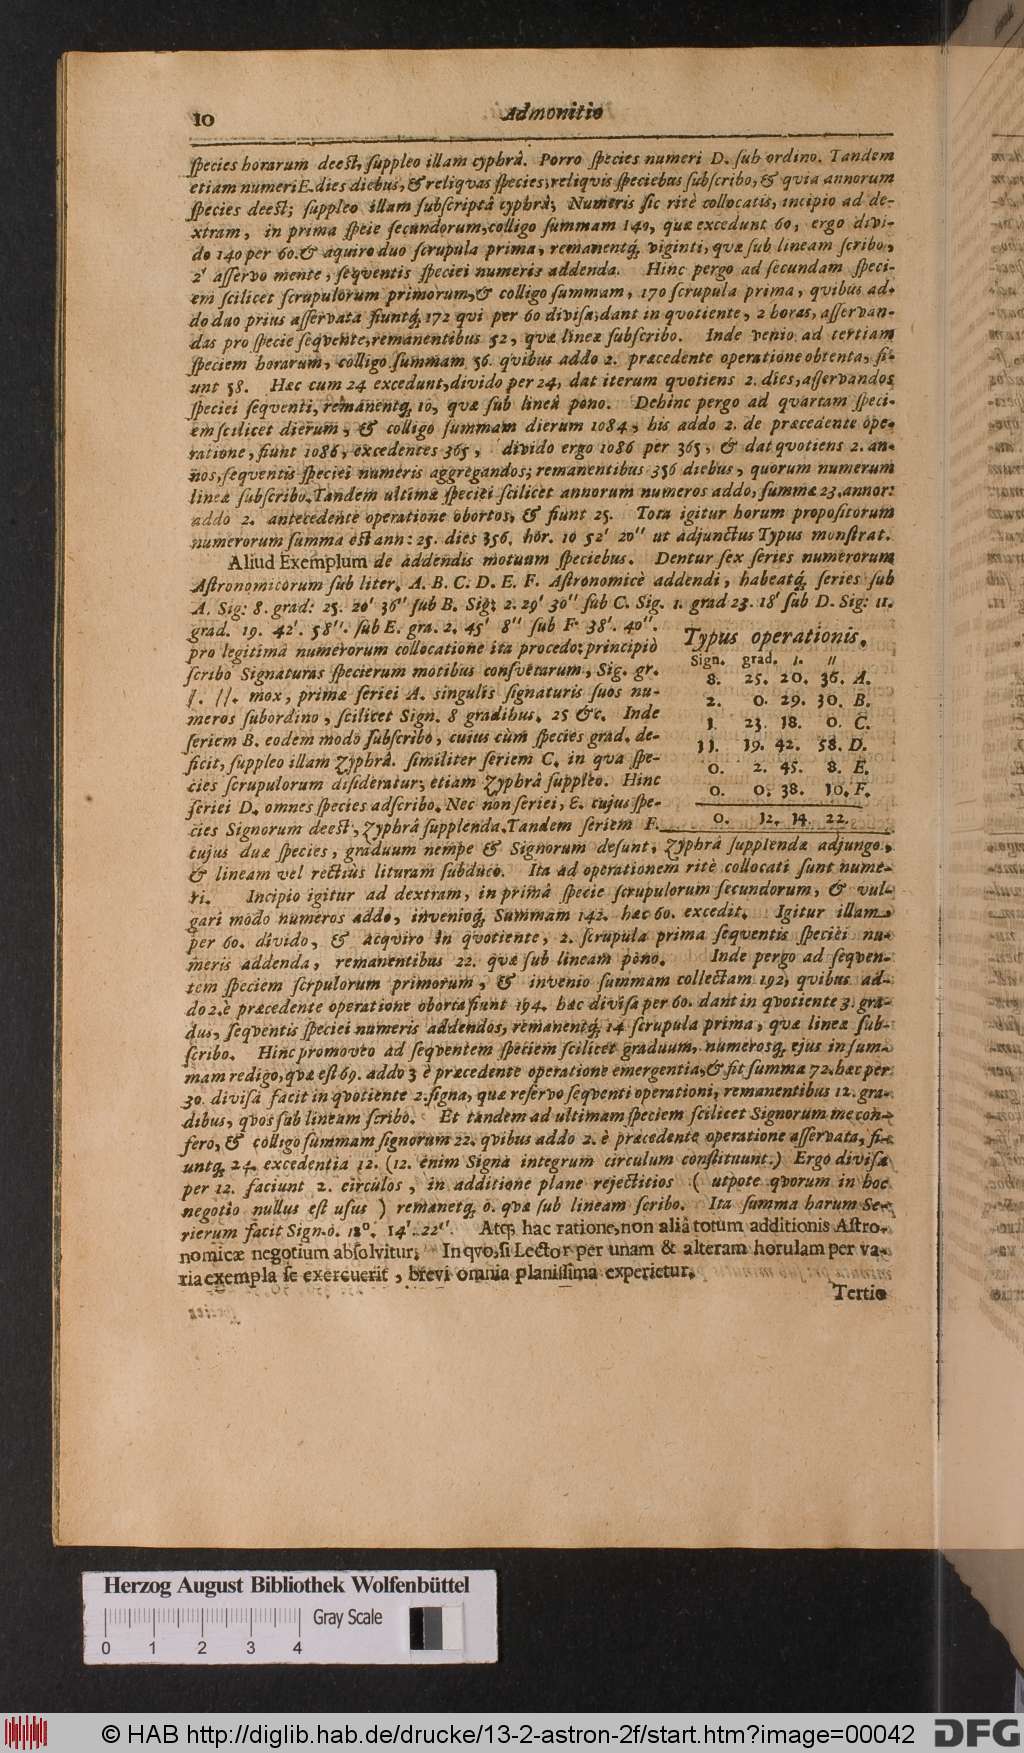 10
Admonitio
ſpecies horarum deeſt, ſuppleo illam cyphrâ. Porro ſpecies numeri D. ſub ordino. Tandem
etiam numeri E. dies diebus, & reliquas ſpecies, reliquis ſpeciebus ſubſcribo, & qvia annorum
ſpecies deeſt; ſuppleo illam ſubſcriptâ cyphrâ; Numeris ſic ritè collocatis, incipio ad de-
xtram, in prima ſpeie ſecundorum, colligo ſummam 140, quæ excedunt 60, ergo divi-
do 140 per 60. & aquiro duo ſcrupula prima, remanentq; viginti, quæ ſub lineam ſcribo,
2' aſſervo mente, ſeqventis ſpeciei numeris addenda. Hinc pergo ad ſecundam ſpeci-
em ſcilicet ſcrupulorum primorum, & colligo ſummam, 170 ſcrupula prima, qvibus ad-
do duo prius aſſervata fiuntq; 172 qui per 60 diviſa, dant in qvotiente, 2 horas, aſſervan-
das pro ſpecie ſeqvente, remanentibus 52, quæ lineæ ſubſcribo. Inde venio ad tertiam
ſpeciem horarum, colligo ſummam 56. qvibus addo 2. præcedente operatione obtenta, fi-
unt 58. Hæc cum 24 excedunt, divido per 24, dat iterum qvotiens 2. dies, aſſervandos
ſpeciei ſeqventi, remanentq; 10, quæ ſub lineâ pono. Dehinc pergo ad quartam ſpeci-
em ſcilicet dierum, & colligo ſummam dierum 1084, his addo 2. de præcedente ope-
ratione, fiunt 1086, excedentes 365, divido ergo 1086 per 365, & dat qvotiens 2. an-
nos, ſeqventis ſpeciei numeris aggregandos; remanentibus 356 diebus, quorum numerum
lineæ ſubſcribo. Tandem ultimæ ſpeciei ſcilicet annorum numeros addo, ſumma 23. annor:
addo 2. antecedente operatione obortos, & fiunt 25. Tota igitur horum propoſitorum
numerorum ſumma eſt ann: 25. dies 356. hor. 10 52' 20'' ut adjunctus Typus monſtrat.
Aliud Exemplum de addendis motuum ſpeciebus. Dentur ſex ſeries numerorum
Aſtronomicorum ſub liter. A. B. C. D. E. F. Aſtronomicè addendi, habeatq; ſeries ſub
A. Sig: 8. grad: 25. 20' 36'' ſub B. Sig: 2. 29' 30'' ſub C. Sig. 1. grad 23. 18' ſub D. Sig: 11.
grad. 19. 42'. 58''. ſub E. gra. 2. 45' 8'' ſub F. 38'. 40''.
pro legitimâ numerorum collocatione ita procedo: principiò
ſcribo Signaturas ſpecierum motibus conſvetarum, Sig. gr.
/. //. mox, primæ ſeriei A. singulis ſignaturis ſuos nu-
meros ſubordino, ſcilicet Sign. 8 gradibus. 25 &c. Inde
ſeriem B. eodem modo ſubſcribo, cuius cùm ſpecies grad. de-
ficit, ſuppleo illam Zyphrâ. ſimiliter ſeriem C. in qva ſpe-
cies ſcrupulorum diſideratur, etiam Zyphrâ ſuppleo. Hinc
ſeriei D. omnes ſpecies adſcribo. Nec non ſeriei, E. cujus ſpe-
cies Signorum deeſt, Zyphrâ ſupplenda. Tandem ſeriem F.
Typus operationis.
Sign. grad. /. //
8. 25. 20. 36. A.
2. 0. 29. 30. B.
1. 23. 18. 0. C.
11. 19. 42. 58. D.
0. 2. 45. 8. E.
0. 0. 38. 10. F.
0. 12. 14. 22.
cujus duæ ſpecies, graduum nempe & Signorum deſunt, Zyphrâ ſupplendæ adjungo,
& lineam vel rectius lituram ſubduco. Ita ad operationem ritè collocati ſunt nume-
ri. Incipio igitur ad dextram, in primâ ſpecie ſcrupulorum ſecundorum, & vul-
gari modo numeros addo, invenioq; Summam 142. hæc 60. excedit. Igitur illam
per 60. divido, & acqviro in qvotiente, 2. ſcrupula prima ſeqventis ſpeciei nu-
meris addenda, remanentibus 22. qvæ ſub lineam pono. Inde pergo ad ſeqven-
tem ſpeciem ſcrpulorum primorum, & invenio ſummam collectam 192, qvibus ad-
do 2. è præcedente operatione oborta fiunt 194. hæc diviſa per 60. dant in qvotiente 3. gra-
dus, ſeqventis ſpeciei numeris addendos, remanentq; 14 ſcrupula prima, qvæ lineæ ſub-
ſcribo. Hinc promoveo ad ſeqventem ſpeciem ſcilicet graduum, numerosq; ejus in ſum-
mam redigo, qvæ eſt 69. addo 3 è præcedente operatione emergentia, & fit ſumma 72. hæc per
30. diviſa facit in qvotiente 2. ſigna, quæ reſervo ſeqventi operationi, remanentibus 12. gra-
dibus, qvos ſub lineam ſcribo. Et tandem ad ultimam ſpeciem ſcilicet Signorum me con-
fero, & colligo ſummam ſignorum 22. qvibus addo 2. è præcedente operatione aſſervata, fi-
untq; 24. excedentia 12. (12. enim Signa integrum circulum conſtituunt.) Ergo diviſa
per 12. faciunt 2. circulos, in additione plane rejectitios (utpote qvorum in hoc
negotio nullus eſt uſus) remanetq; 0. qvæ ſub lineam ſcribo. Ita ſumma harum Se-
rierum facit Sign. 0. 12°. 14'. 22''. Atq; hac ratione, non aliâ totum additionis Aſtro-
nomicæ negotium abſolvitur. In qvo, ſi Lector per unam & alteram horulam per va-
ria exempla ſe exercuerit, brevi omnia planiſſima experietur.
Tertio
Herzog August Bibliothek Wolfenbüttel
Gray Scale
0 1 2 3 4
© HAB http://diglib.hab.de/drucke/13-2-astron-2f/start.htm?image=00042
DFG